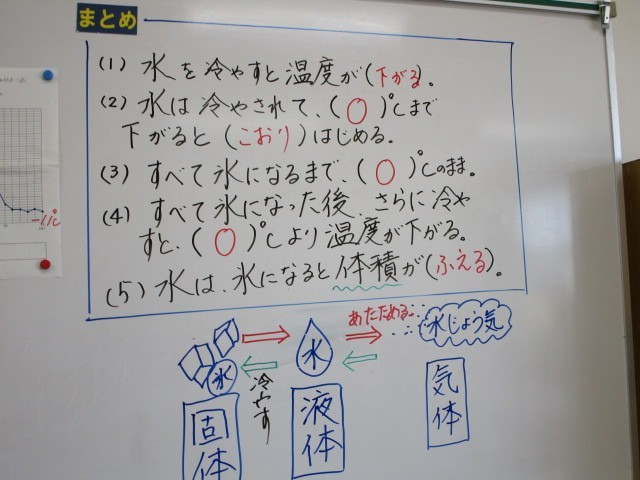 まとめ
(1) 水を冷やすと温度が(下がる)。
(2) 水は冷やされて、(0)℃まで
下がると(こおり)はじめる。
(3) すべて氷になるまで、(0)℃のまま。
(4) すべて氷になった後、さらに冷や
すと、(0)℃より温度が下がる。
(5) 水は、氷になると体積が(ふえる)。
-11℃
あたためる
氷
水
水じょう気
冷やす
固体
液体
気体